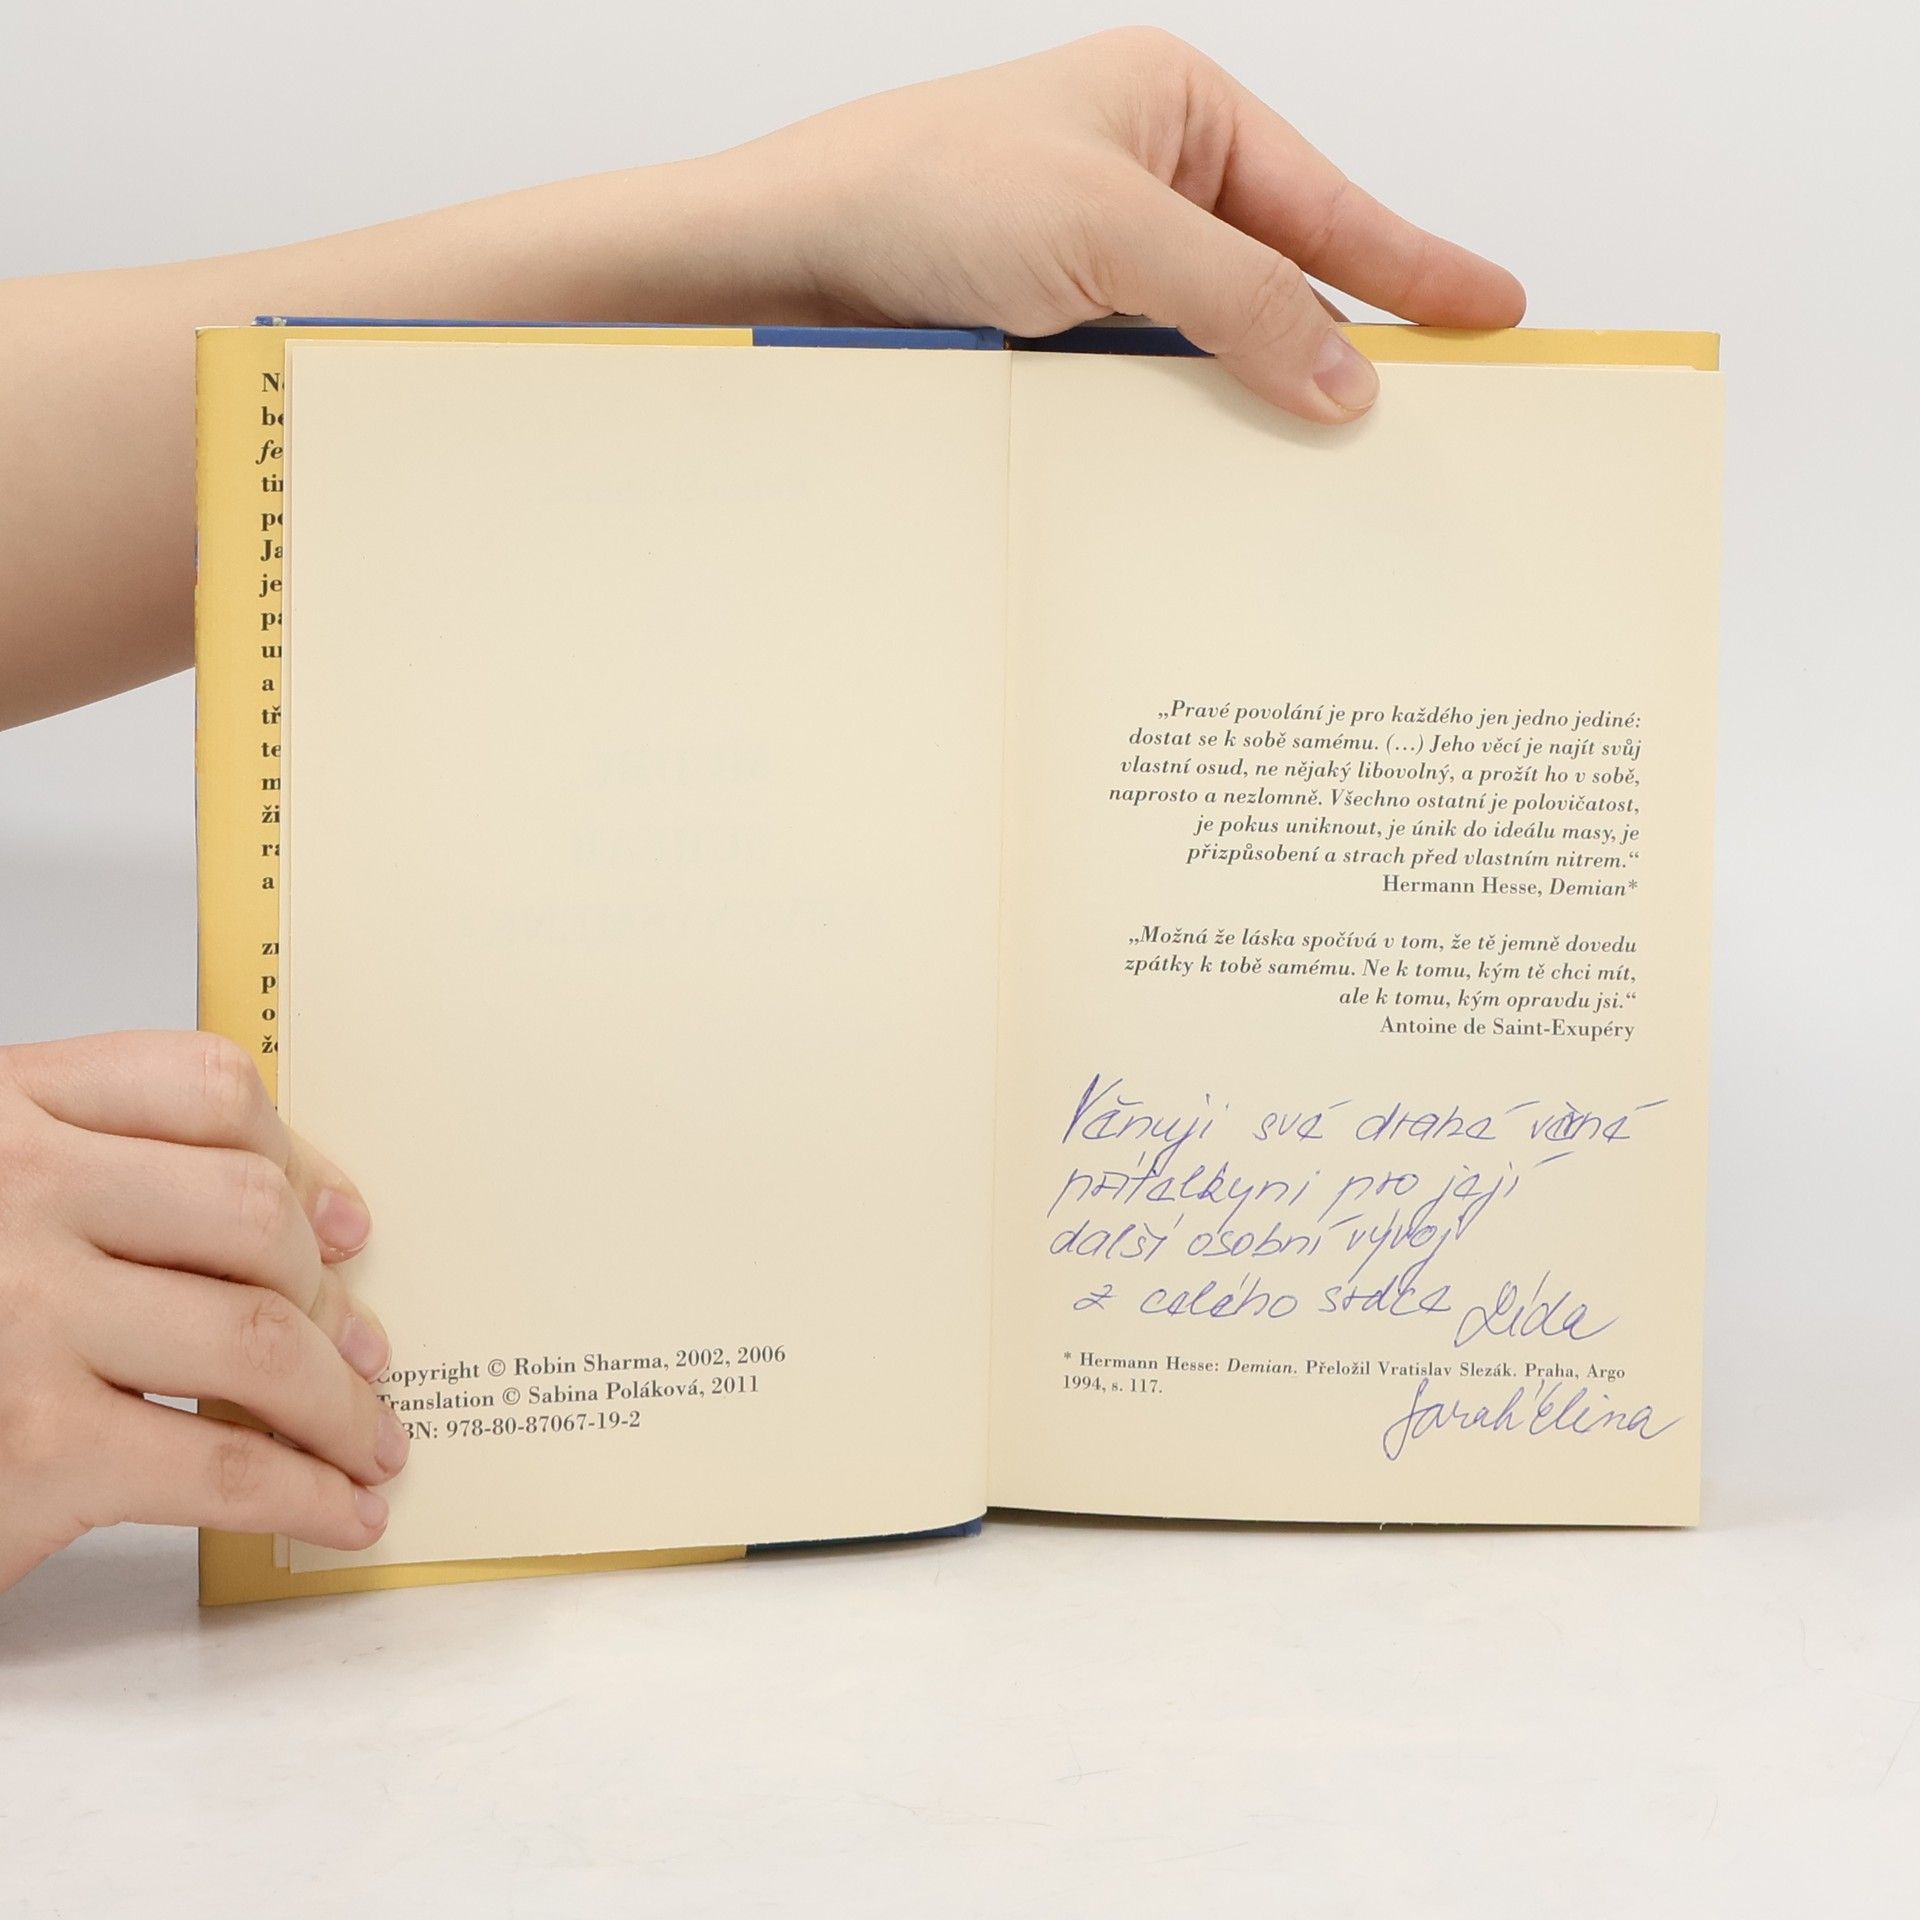 Na
be
fe
tin
po
Ja
je
pa
un
a
tř
te
m
ži
ra
a
zn
p
o
že
Copyright © Robin Sharma, 2002, 2006
Translation © Sabina Poláková, 2011
BN: 978-80-87067-19-2
„Pravé povolání je pro každého jen jedno jediné:
dostat se k sobě samému. (...) Jeho věcí je najít svůj
vlastní osud, ne nějaký libovolný, a prožít ho v sobě,
naprosto a nezlomně. Všechno ostatní je polovičatost,
je pokus uniknout, je únik do ideálu masy, je
přizpůsobení a strach před vlastním nitrem.“
Hermann Hesse, Demian*
„Možná že láska spočívá v tom, že tě jemně dovedu
zpátky k tobě samému. Ne k tomu, kým tě chci mít,
ale k tomu, kým opravdu jsi.“
Antoine de Saint-Exupéry
Věnuji své drahé věrné
přítelkyni pro její
další osobní vývoj
z celého srdce Lída
* Hermann Hesse: Demian. Přeložil Vratislav Slezák. Praha, Argo
1994, s. 117.
Sarah Elina